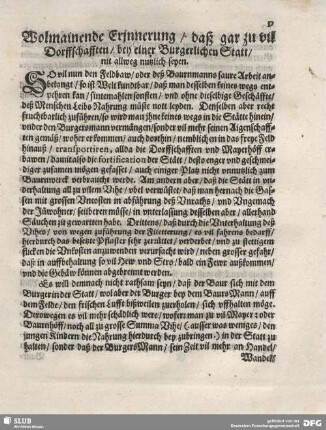 Wolmainende Erinnerung / daß gar zu vil
Dorffschafften / bey einer Burgerlichen Statt /
nit allweg nutzlich seyen.
SO vil nun den Feldbaw / oder deß Baurnmanns saure Arbeit an-
belangt / so ist Welt kundtbar / daß man desselben keines wegs ent-
rahten kan / sintemahlen sonsten / und ohne dieselbige Geschäfften
deß Menschen Leibs Nahrung müste nott leyden. Denselben aber recht
fruchtbarlich zuführen / so wird man ihne keines wegs in die Stätte hinein /
under den Burgersmann vermängen / sonder vil mehr seinen Aigenschafft-
ten gemäß / woher er kommen / auch dorthin / nemblichen in das freye Feld
hinauß / transportieren, allda die Dorffschafften und Mayerhöff er-
bawen / damit also die fortification der Stätt / desto enger und geschmei-
diger zusamen mögen gefasset / auch einiger Platz nicht unnutzlich zum
Baurnwerck verbraucht werde. Am andern aber / daß die Stätt in un-
derhaltung all zu vilem Vihe / übel verwüstet / daß man hernach die Gas-
sen mit grossen Uncosten in abführung deß Unraths / und Ungemach
der Inwohner / seüberen müsse / in underlassung desselben aber / allerhand
Säuchen zu gewarten habe. Drittens / daß durch die Underhaltung deß
Vihes / von wegen zuführung der Fütterung / es vil fahrens bedarff /
hierdurch das besetzte Pflaster sehr zerrüttet / verderbet / und zu stettigen
flicken die Unkosten anzuwenden verursacht wird / neben grosser gefahr /
daß in auffbehaltung so vil Hew und Stro / bald ein Fewr außkommen /
und die Gebäw können abgebrennt werden.
Es will demnach nicht rathsam seyn / daß der Baur sich mit dem
Burger in der Statt / wol aber der Burger bey dem Baurs Mann / auff
dem Felde / den frischen Lufft bißweilen zuerholen / sich uffhalten möge.
Derowegen es vil mehr schädlich were / woferr man zu vil Mayer: oder
Baurnhöff / noch all zu grosse Summa Vihe / (ausser was weniges / den
jungen Kindern die Nahrung hierdurch bey zubringen.) in der Statt zu
halten / sonder daß der Burgers Mann / sein Zeit vil mehr an Handel /
Wandels
SLUB
DFG